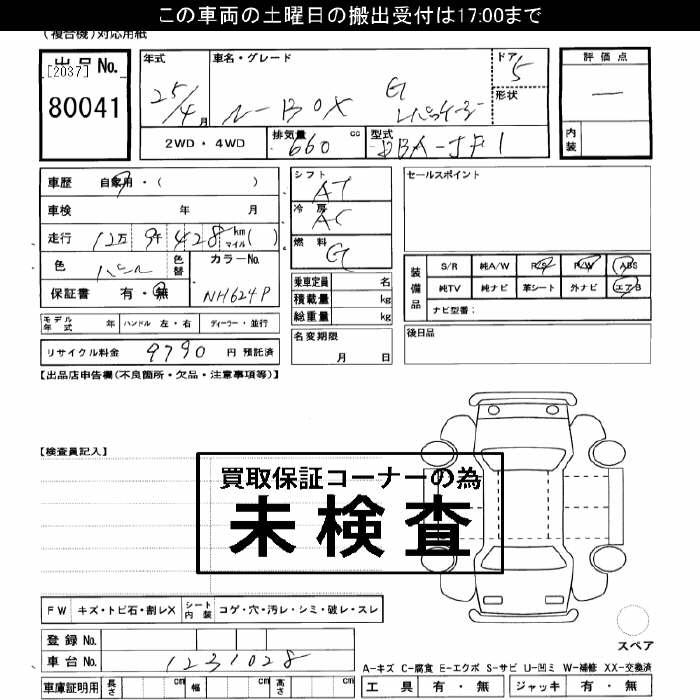 この車両の土曜日の搬出受付は17:00まで
(複合機)対応用紙
出品 No.
[2037]
80041
年式
25/4月
車名・グレード
N-BOX G
Lパッケージ
ドア
5
形状
評価点
ー
内装
2WD・4WD
排気量
660 cc
型式
DBA-JF1
車歴 自家用・( )
車検 年 月
走行 12万 9千 428 km マイル( )
色 パール
色替
カラーNo.
NH624P
保証書 有・無
シフト
AT
冷房
AC
燃料
G
乗車定員 名
積載量 kg
総重量 kg
セールスポイント
装備品
S/R 純A/W P/S P/W ABS
純TV 純ナビ 革シート 外ナビ エアB
ナビ型番:
モデル年式 年 ハンドル 左・右 ディーラー・並行
名変期限
月 日
後日品
リサイクル料金 9790 円 預託済
【出品店申告欄(不良箇所・欠品・注意事項等)】
【検査員記入】
買取保証コーナーの為
未検査
FW キズ・トビ石・割レX シート内装 コゲ・穴・汚レ・シミ・破レ・スレ
登録 No.
車台 No. 1231028
スペア
A-キズ C-腐食 E-エクボ S-サビ U-凹ミ W-補修 XX-交換済
車庫証明用 長さ cm 幅 cm 高さ cm
工具 有・無 ジャッキ 有・無